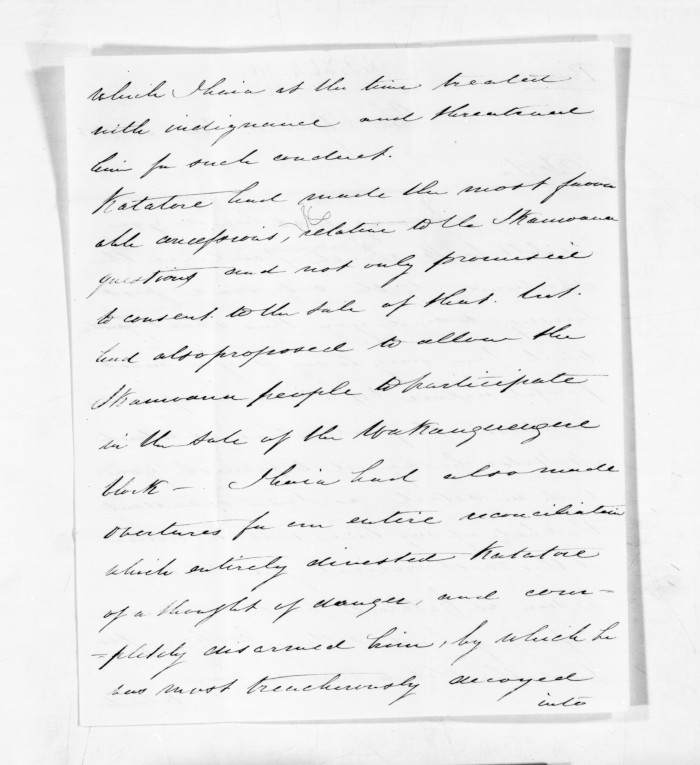 which Ihaia at the time treated
with indignance and threatened
him for such conduct.
Katatore had made the most favour
able concessions, relative to the Ikamoana
questions and not only promised
to consent to the sale of that. but.
had also proposed to allow the
Ikamoana people to participate
in the sale of the Wakangerengere
block - Ihaia had also made
overtures for an entire reconciliation
which entirely divested Katatore
of a thought of danger, and com-
-pletely disarmed him, by which he
was most treacherously decoyed
into